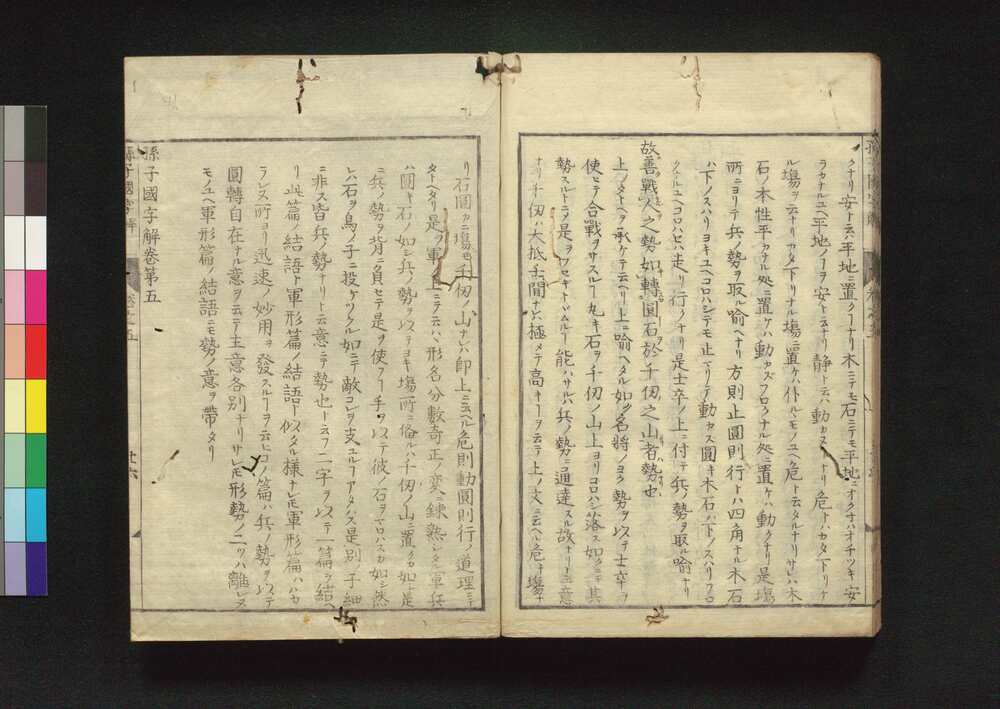 クナリ安ト云ハ平地ニ置クーナリ木ニテモ石ニテモ平地ニオクナハオチツキ安
ラカナルユヘ平地ノーヲ安ト云ナリ静ト云ハ動カヌーナリ危トハカタ下リナ
ル場ヲ云ナリカタ下リナル場ニ置ケハ仆ルモノユヘ危ト云タルナリサレハ木
石ノ木性平カナル処ニ置ケハ動カズフロクナル処ニ置ケハ動クナリ是場
所ニヨリテ兵ノ勢ヲ取ル喩ヘナリ方則止圓則行トハ四角ナル木石
ハ下ノスハリヨキユヘコロハシテモ止マリテ動カス圓キ木石ハ下ノスハリフロ
クナルユヘコロハセハ走リ行クナリ是士卒ノ上ニ付テ兵ノ勢ヲ取ル喩ナリ
故善戰人之勢如轉圓石於千仭之山者勢也
上ノタトヘヲ承ケテ云ヘリ上ニ喩ヘタル如ク名將ノヨク勢ヲ以テ士卒ヲ
使ヒテ合戰ヲサスルー丸キ石ヲ千仭ノ山上ヨリコロハシ落ス如クニテ其
勢スルトニ是ヲフセキトヽムルー能ハサルハ兵ノ勢ニ通達スル故ナリト云意
ナリ千仭ハ大抵千間ナレハ極メテ高キーヲ云テ上ノ文ニ云ヘル危キ場ナ
リ石圓カニ場モ千仭ノ山ナレハ卽上ニ云ヘル危則動圓則行ノ道理ニテ
タトヘタリ是ヲ軍ノ上ニテ云ハヽ形名分數奇正ノ変ニ錬熟シタル軍兵
ハ圓キ石ノ如シ兵ノ勢ヲ以テヨキ場所ニ備ルハ千仭ノ山ニ置クカ如シ是
兵ノ勢ヲ背ニ負セテ是ヲ使フー手ヲ以テ彼ノ石ヲコロハスカ如シ然
レハ石ヲ鳥ノ子ニ投ケツクル如ニテ敵コレヲ支ユルーアタハス是別ノ子細
ニ非ス皆兵ノ勢ナリト云意ニテ勢也ト云フ二字ヲ以テ一篇ヲ結ヘ
リ此篇ノ結語ト軍形篇ノ結語ト似タル様ナレモ軍形篇ハハカ
ラレヌ所ヨリ迅速ノ妙用ヲ發スルーヲ云ヒコノ篇ハ兵ノ勢ヲ以テ
圓轉自在ナル意ヲ云テ主意各別ナリサレモ形勢ノ二ツハ離レヌ
モノユヘ軍形篇ノ結語ニモ勢ノ意ヲ帶タリ
孫子國字解卷第五